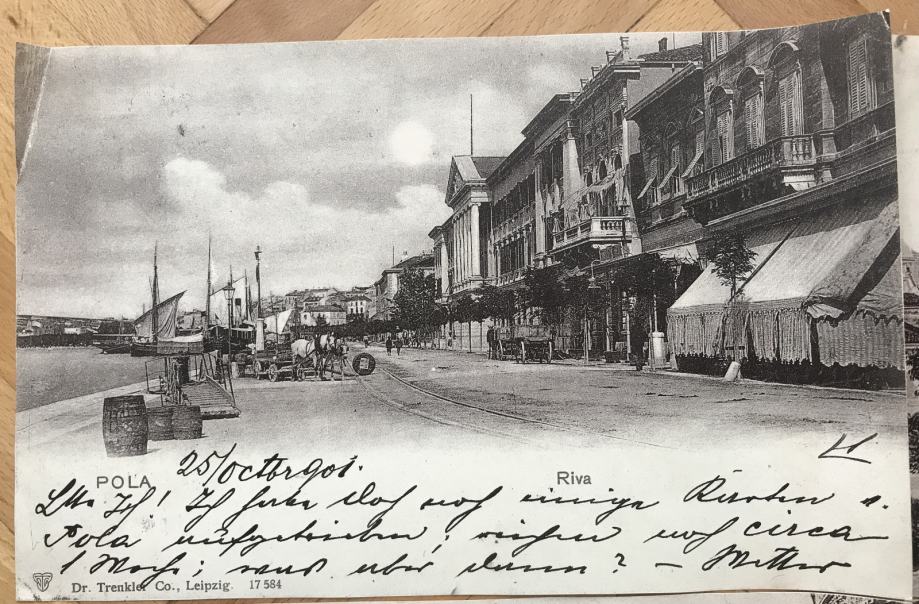 POLA 25/octbr 901. Riva
Ich! Ich habe doch noch einige Karten v.
Pola aufgetrieben; reichen noch circa
1 Woche; was aber dann? –
Dr. Trenkler Co., Leipzig. 17 584